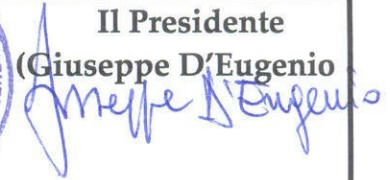 Il Presidente
(Giuseppe D'Eugenio
Giuseppe D'Eugenio